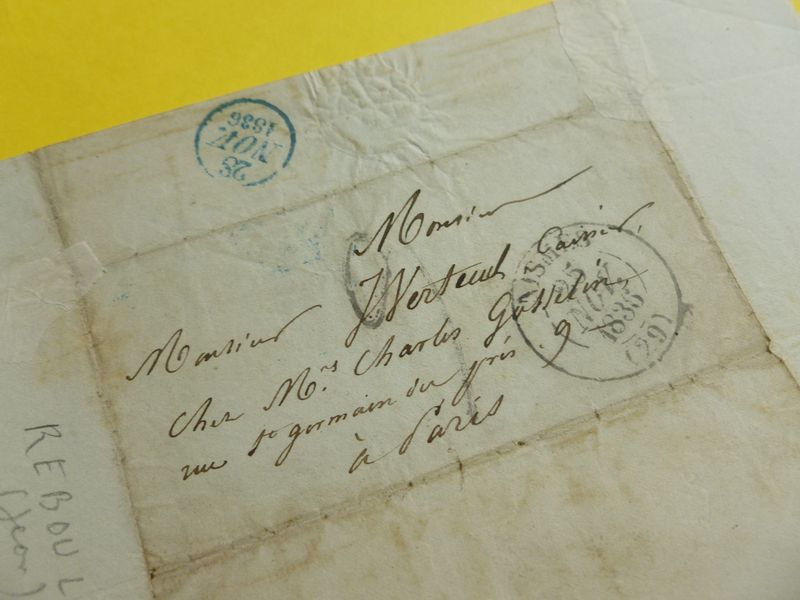 28
NOV
1836
Monsieur
Monsieur J. Verteuil Caissier,
chez Mrs Charles Gosselin,
rue St germain des prés 9
à Paris
NISMES
25
NOV.
1836
(29)
REBOUL
(Jean)